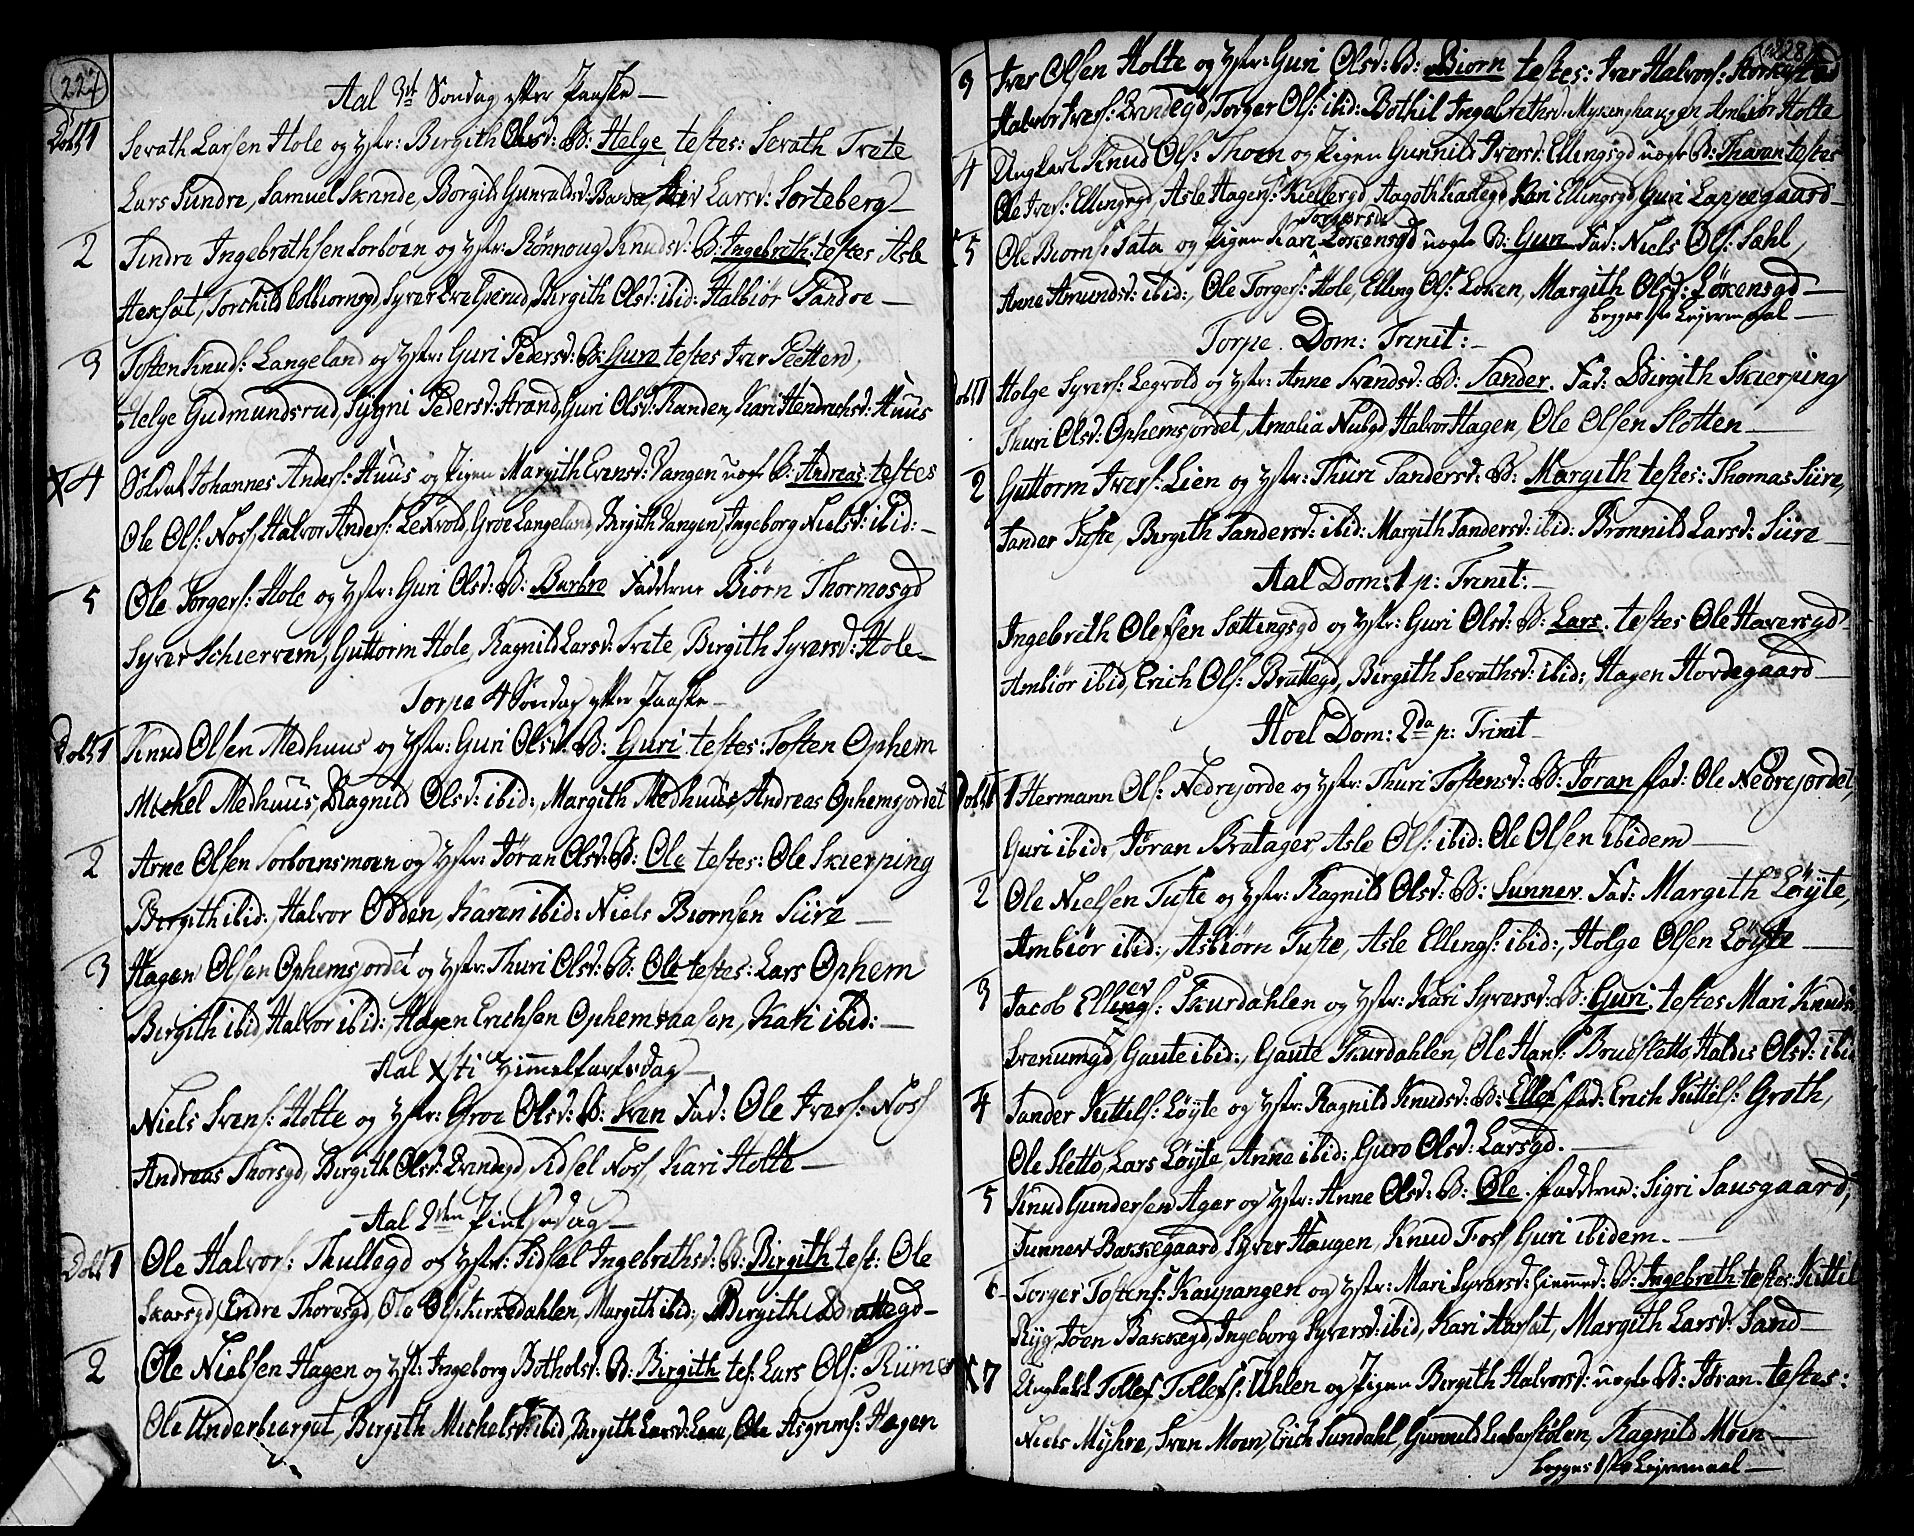 227
Aal 3die Søndag efter Paaske —
Døbt 1 Sevath Larsen Hole og hstr: Birgith Olsd: B: Helge testes: Sevath Trete
Lars Sundre, Samuel Skinde, Borgild Gunvaldsd: Larsd: Sorteberg —
2 Sindre Ingebrethsen Torboen og hstr: Rønnoug Knudsd: B: Ingebreth: testes Asle
Torchild Colbiornsgd, Syver Birgith Olsd: ibid: Halbiør Sandoe —
3 Tosten Knuds: Langeland og hstr: Guri Pedersd: B: Guro testes Iver
Helge Gudmundsrud, Sygni Pedersd: Strand, Guri Olsd: Randen, Kari Hendrichsd: Huus
X 4 Soldat Johannes Anders: Huus og Pigen Margith Evensd: Vangen uægt B: Andreas: testes
Ole Ols: Noss, Halvor Anders: Lexvold, Groe Langeland, Birgith Vangen, Ingeborg Nielsd: ibid: —
5 Ole Torgers: Hole og hstr: Guri Olsd: B: Barbro Fadderne Biørn Thormosgd
Syver Schiervem, Guttorm Hole, Ragnild Larsd: Trete, Birgith Syversd: Hole —
Torpe 4 Søndag efter Paaske —
Døbt 1 Knud Olsen Medhuus og hstr: Guri Olsd: B: Guri testes: Tosten Ophem
Mickel Medhuus, Ragnild Olsd: ibid:, Margith Medhuus, Andreas Ophemsjordet
2 Arne Olsen Torboensmoen og hstr: Jøran Olsd: B: Ole testes: Ole Skierping
Birgith ibid:, Halvor Odden, Karen ibid: Niels Biørnsen Siire —
3 Hagen Olsen Ophemsjordet og hstr: Thuri Olsd: B: Ole testes: Lars Ophem
Birgith ibid Halvor ibid:, Hagen Erichsen Ophemsaasen, Kari ibid: —
Aal Xsti Himmelfartsdag —
Niels Svens: Holte og hstr: Groe Olsd: B: Sven Fad: Ole Ivers: Noss
Andreas Thorsgd, Birgith Olsd: Qvindegd, Sidsel Noss, Kari Holte —
Aal 2den Pintsedag —
Døbt 1 Ole Halvors: Thullegd og hstr: Sidsel Ingebrethsd: B: Birgith test: Ole
Skarsgd, Endre Thoresgd, Ole Ols Kirkedahlen, Margith ibid:, Birgith Brattegd —
2 Ole Nielsen Hagen og hst: Ingeborg Botholsd: B: Birgith tes: Lars Ols: Riime
Ole Underbierget, Birgith Michelsd: ibid, Birgith Larsd: Ole Asgrims: Hagen
228
3 Iver Olsen Holte og hstr: Guri Olsd: B: Biorn testes: Iver Halvors:
Halvor Ivers: Qvindegd, Torger Ols: ibid: Bothil Ingebrethsd: Myking haugen Ambiør Holte
4 Ungkarl Knud Ols: Thoen og Pigen Gunnild Iversd: Ellingsgd uægte B: Thoran testes
Ole Ivers: Ellingsgd, Asle Hagens: Kiellergd, Aagoth Kastegd Kari Ellingsgd Guri Lappegaard —
Torgersd:
X 5 Ole Biorns: Sata og Pigen Kari Løkensgd uægte B: Guri Fad: Niels Ols: Sahl,
Anne Amundsd: ibid:, Ole Torgers: Hole, Elling Ols: Løken, Margith Olsd: Løkensgd —
begges 1ste Lejermaal —
Torpe. Dom: Trinit: —
Døbt 1 Holge Syvers: Legvold og hstr: Anne Svendsd: B: Sander. Fad: Birgith Skierping
Thuri Olsd: Ophemsjordet, Amalia Nubgd Halvor Hagen, Ole Olsen Slotten —
2 Guttorm Ivers: Lien og hstr: Thuri Sandersd: B: Margith testes: Thomas Siire,
Sander Tufte, Birgith Sandersd: ibid: Margith Sandersd: ibid: Brønnild Larsd: Siire —
Aal Dom: 1 p: Trinit: —
Ingebreth Olefsen Sættingsgd og hstr: Guri Olsd: B: Lars. testes Ole Haversgd
Ambiør ibid, Erich Ols: Brattegd, Birgith Sevathsd: ibid:, Hagen Hordegaard —
Hoel Dom: 2da p: Trinit —
Døbt 1 Hermann Ols: Nedrejorde og hstr: Thuri Tostensd: B: Jøran fad: Ole Nedrejordet,
Guri ibid:, Jøran Bratager, Asle Ols: ibid: Ole Olsen ibidem —
2 Ole Nielsen Tufte og hstr: Ragnild Olsd: B: Sunnev. Fad: Margith Løyte,
Ambiør ibid:, Asbiørn Tufte, Asle Ellings: ibid:, Holge Olsen Løyte —
3 Jacob Ellings: Skurdahlen og hstr: Kari Syversd: B: Guri: testes Mari Knuds:
Svenumgd, Gaute ibid:, Gaute Skurdahlen, Ole Hans: Brudsletto, Haldis Olsd: ibid
4 Sander Kittils: Løyte og hstr: Ragnild Knudsd: B: Ellef fad: Erich Kittils: Groth,
Ole Sletto, Lars Løyte, Anne ibid: Guro Olsd: Larsgd. —
5 Knud Gundersen Ager og hstr: Anne Olsd: B: Ole. fadderne: Sigri Sausgaard,
Sunnev Bakkegaard, Syver Haugen, Knud Foss, Guri ibidem. —
6 Torger Tostens: Kaupangen og hstr: Mari Syversd: B: Ingebreth testes: Kittil
Ryg, Joen Bakkegd, Ingeborg Syversd: ibid, Kari Aarset, Margith Larsd: Sand —
X 7 Ungkarl Tollef Tollefs: Uhlen og Pigen Birgith Halvorsd: uægte B: Jøran. testes:
Niels Myhre, Sven Moen, Erich Sundahl, Gunnild Moen —
begges 1ste Lejermaal —